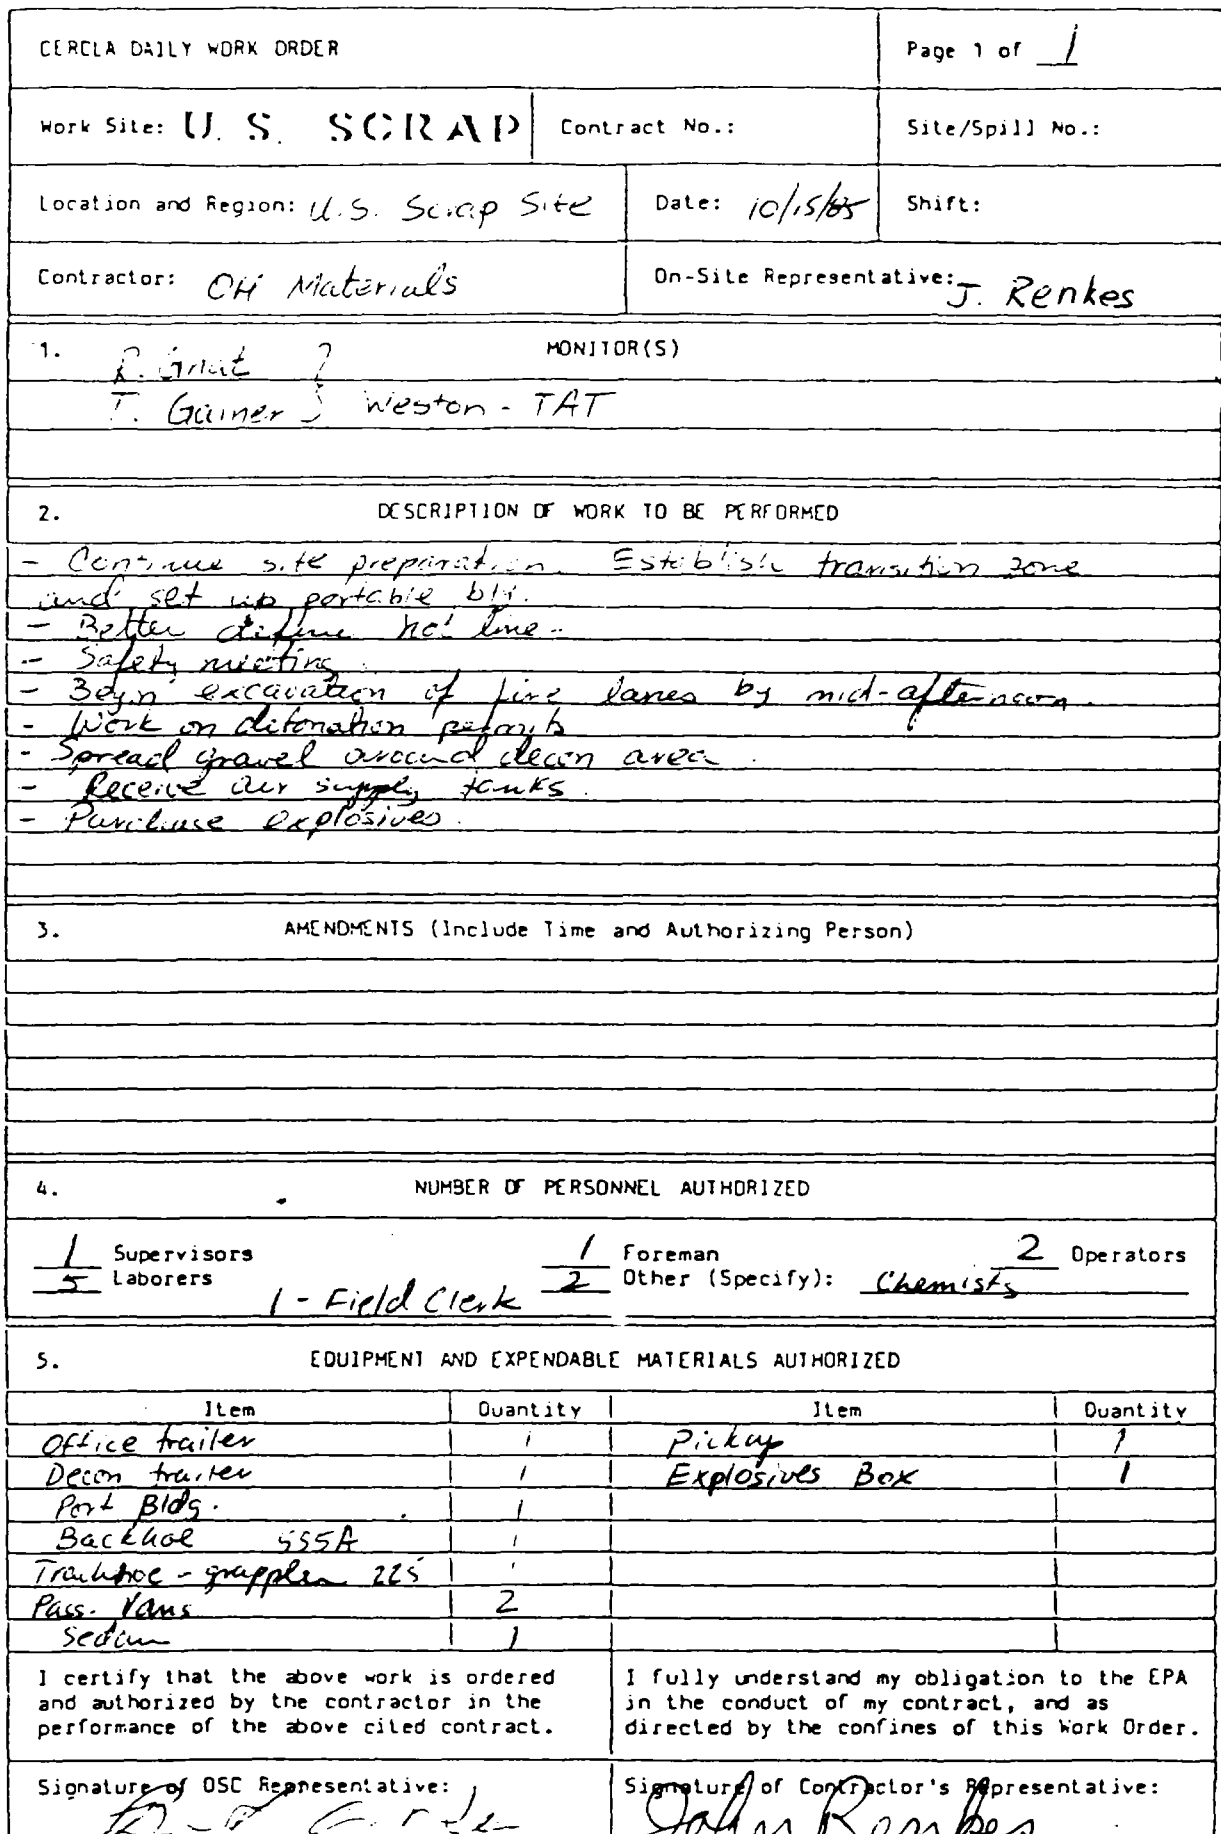 CERCLA DAILY WORK ORDER Page 1 of 1
Work Site: U. S. SCRAP Contract No.: Site/Spill No.:
Location and Region: U.S. Scrap Site Date: 10/15/85 Shift:
Contractor: OH Materials On-Site Representative: J. Renkes
1. MONITOR(S)
R.
T. Gainer } Weston - TAT
2. DESCRIPTION OF WORK TO BE PERFORMED
- Continue site preparation. Establish transition zone
and set up portable
- Better define hot line.
- Safety meeting.
- Begin excavation of fire lanes by mid-afternoon.
- Work on detonation permits
- Spread gravel around decon area.
- Receive air supply tanks.
- Purchase explosives.
3. AMENDMENTS (Include Time and Authorizing Person)
4. NUMBER OF PERSONNEL AUTHORIZED
1 Supervisors 1 Foreman 2 Operators
5 Laborers 2 Other (Specify): Chemists
1 - Field Clerk
5. EQUIPMENT AND EXPENDABLE MATERIALS AUTHORIZED
Item Quantity Item Quantity
Office trailer 1 Pickup 1
Decon trailer 1 Explosives Box 1
Port Bldg. 1
Backhoe 555A 1
Trackhoe - grappler 225 1
Pass. Vans 2
Sedan 1
I certify that the above work is ordered
and authorized by the contractor in the
performance of the above cited contract.
I fully understand my obligation to the EPA
in the conduct of my contract, and as
directed by the confines of this Work Order.
Signature of OSC Representative:
Signature of Contractor's Representative:
John Renkes